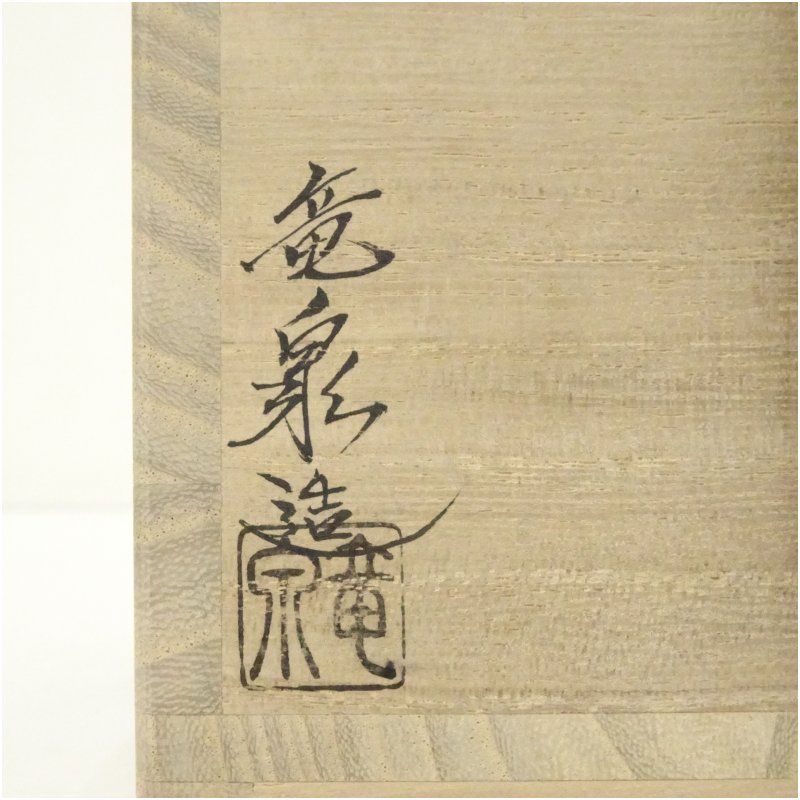 竜泉造
竜泉